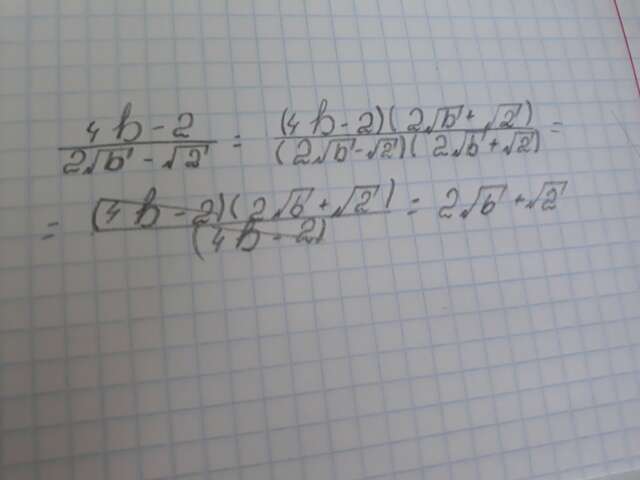 (4b-2)/(2√b-√2) = ((4b-2)(2√b+√2))/((2√b-√2)(2√b+√2)) =
= ((4b-2)(2√b+√2))/(4b-2) = 2√b+√2